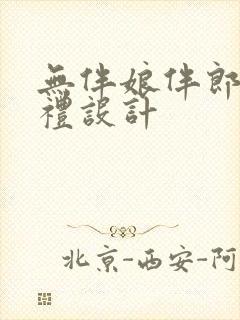 無伴娘伴郎
禮設計
北京-西安-阿